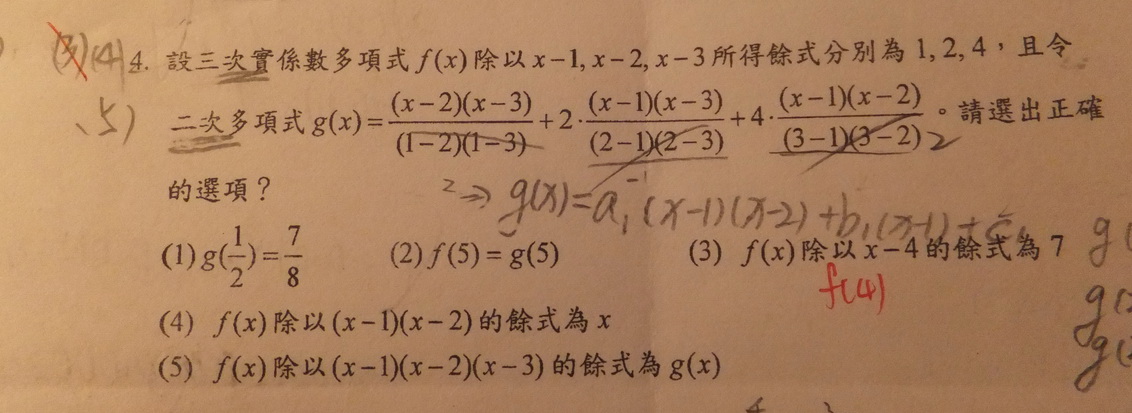 (3)(4) 4. 設三次實係數多項式 f(x) 除以 x−1, x−2, x−3 所得餘式分別為 1, 2, 4，且令
、5) 二次多項式 g(x) = \frac{(x−2)(x−3)}{(1−2)(1−3)} + 2·\frac{(x−1)(x−3)}{(2−1)(2−3)} + 4·\frac{(x−1)(x−2)}{(3−1)(3−2)} 。請選出正確
2
的選項？
2 ⇒ g(x)=a₁(x-1)(x-2)+b₁(x-1)+c₁
-1
(1) g(\frac{1}{2}) = \frac{7}{8} (2) f(5) = g(5) (3) f(x) 除以 x−4 的餘式為 7
f(4)
(4) f(x) 除以 (x−1)(x−2) 的餘式為 x
(5) f(x) 除以 (x−1)(x−2)(x−3) 的餘式為 g(x)